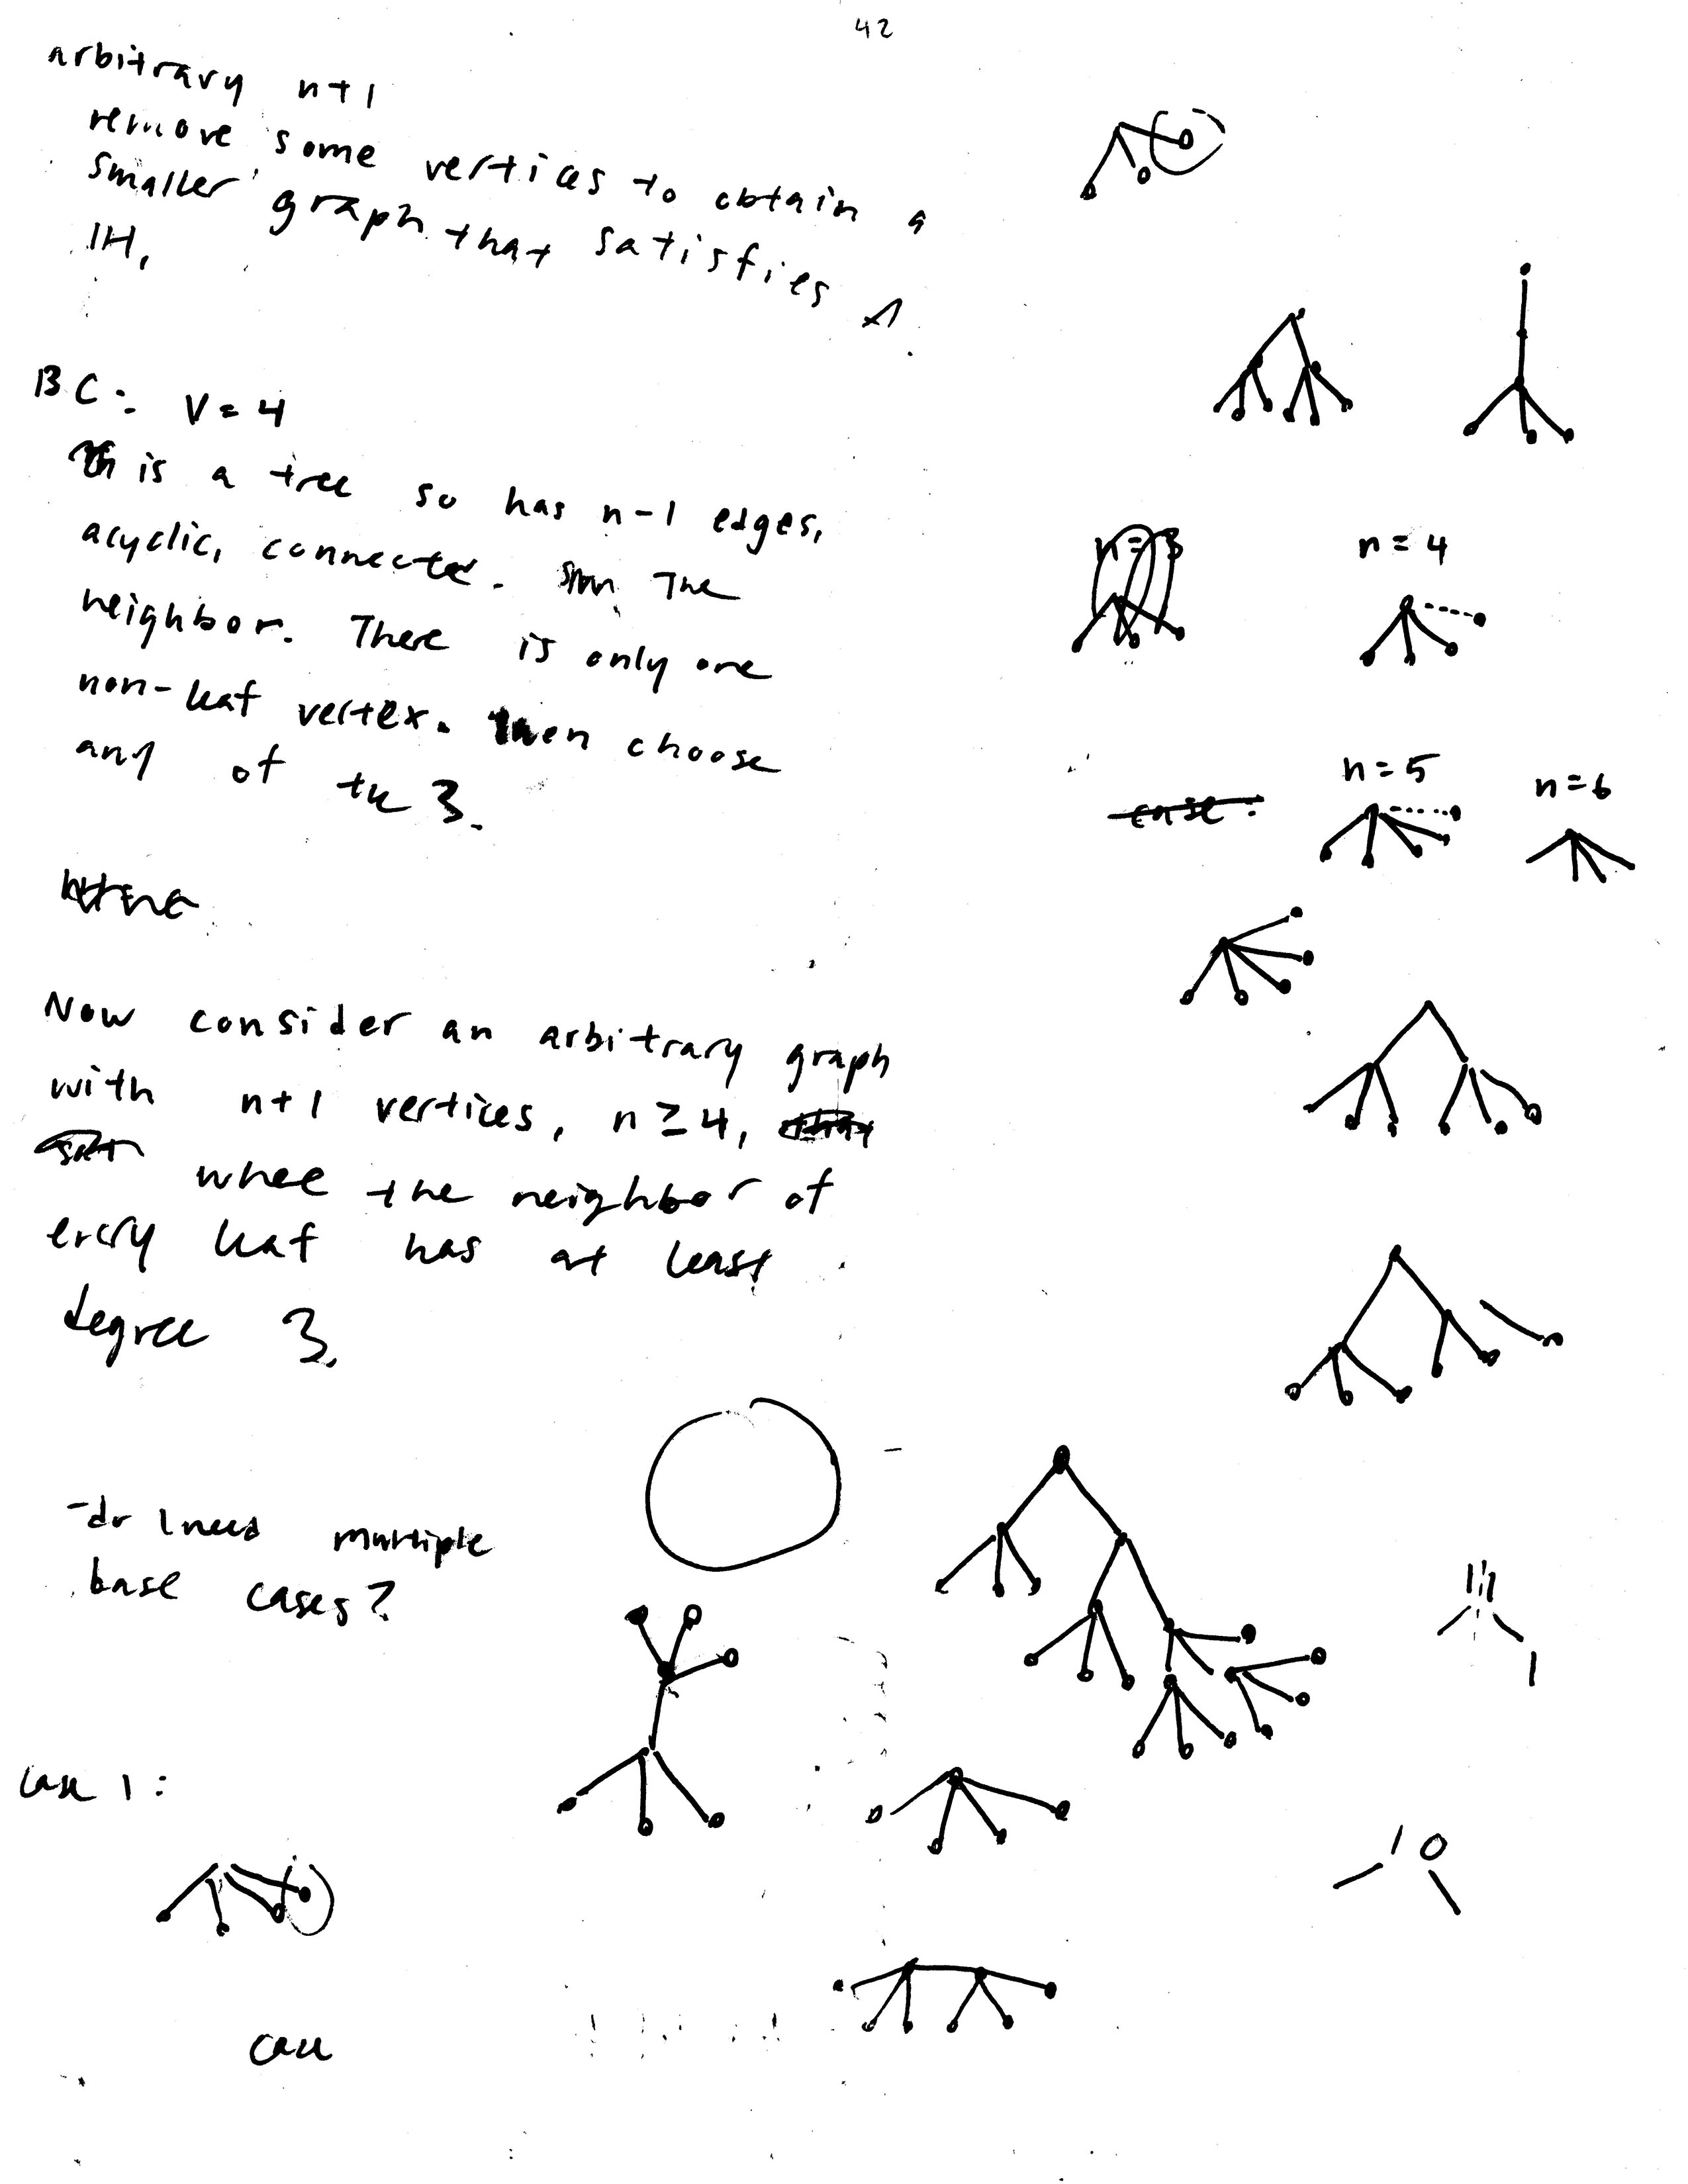 42
arbitrary n+1
remove some vertices to obtain a
smaller graph that satisfies
IH,
BC: V=4
is a tree so has n-1 edges,
acyclic, connected. The
neighbor. There is only one
non-leaf vertex. Then choose
any of the 3.
Now consider an arbitrary graph
with n+1 vertices, n≥4,
where the neighbor of
every leaf has at least
degree 3.
-do I need multiple
base cases?
Case 1:
Case
n=3
n=4
n=5
n=6
case: